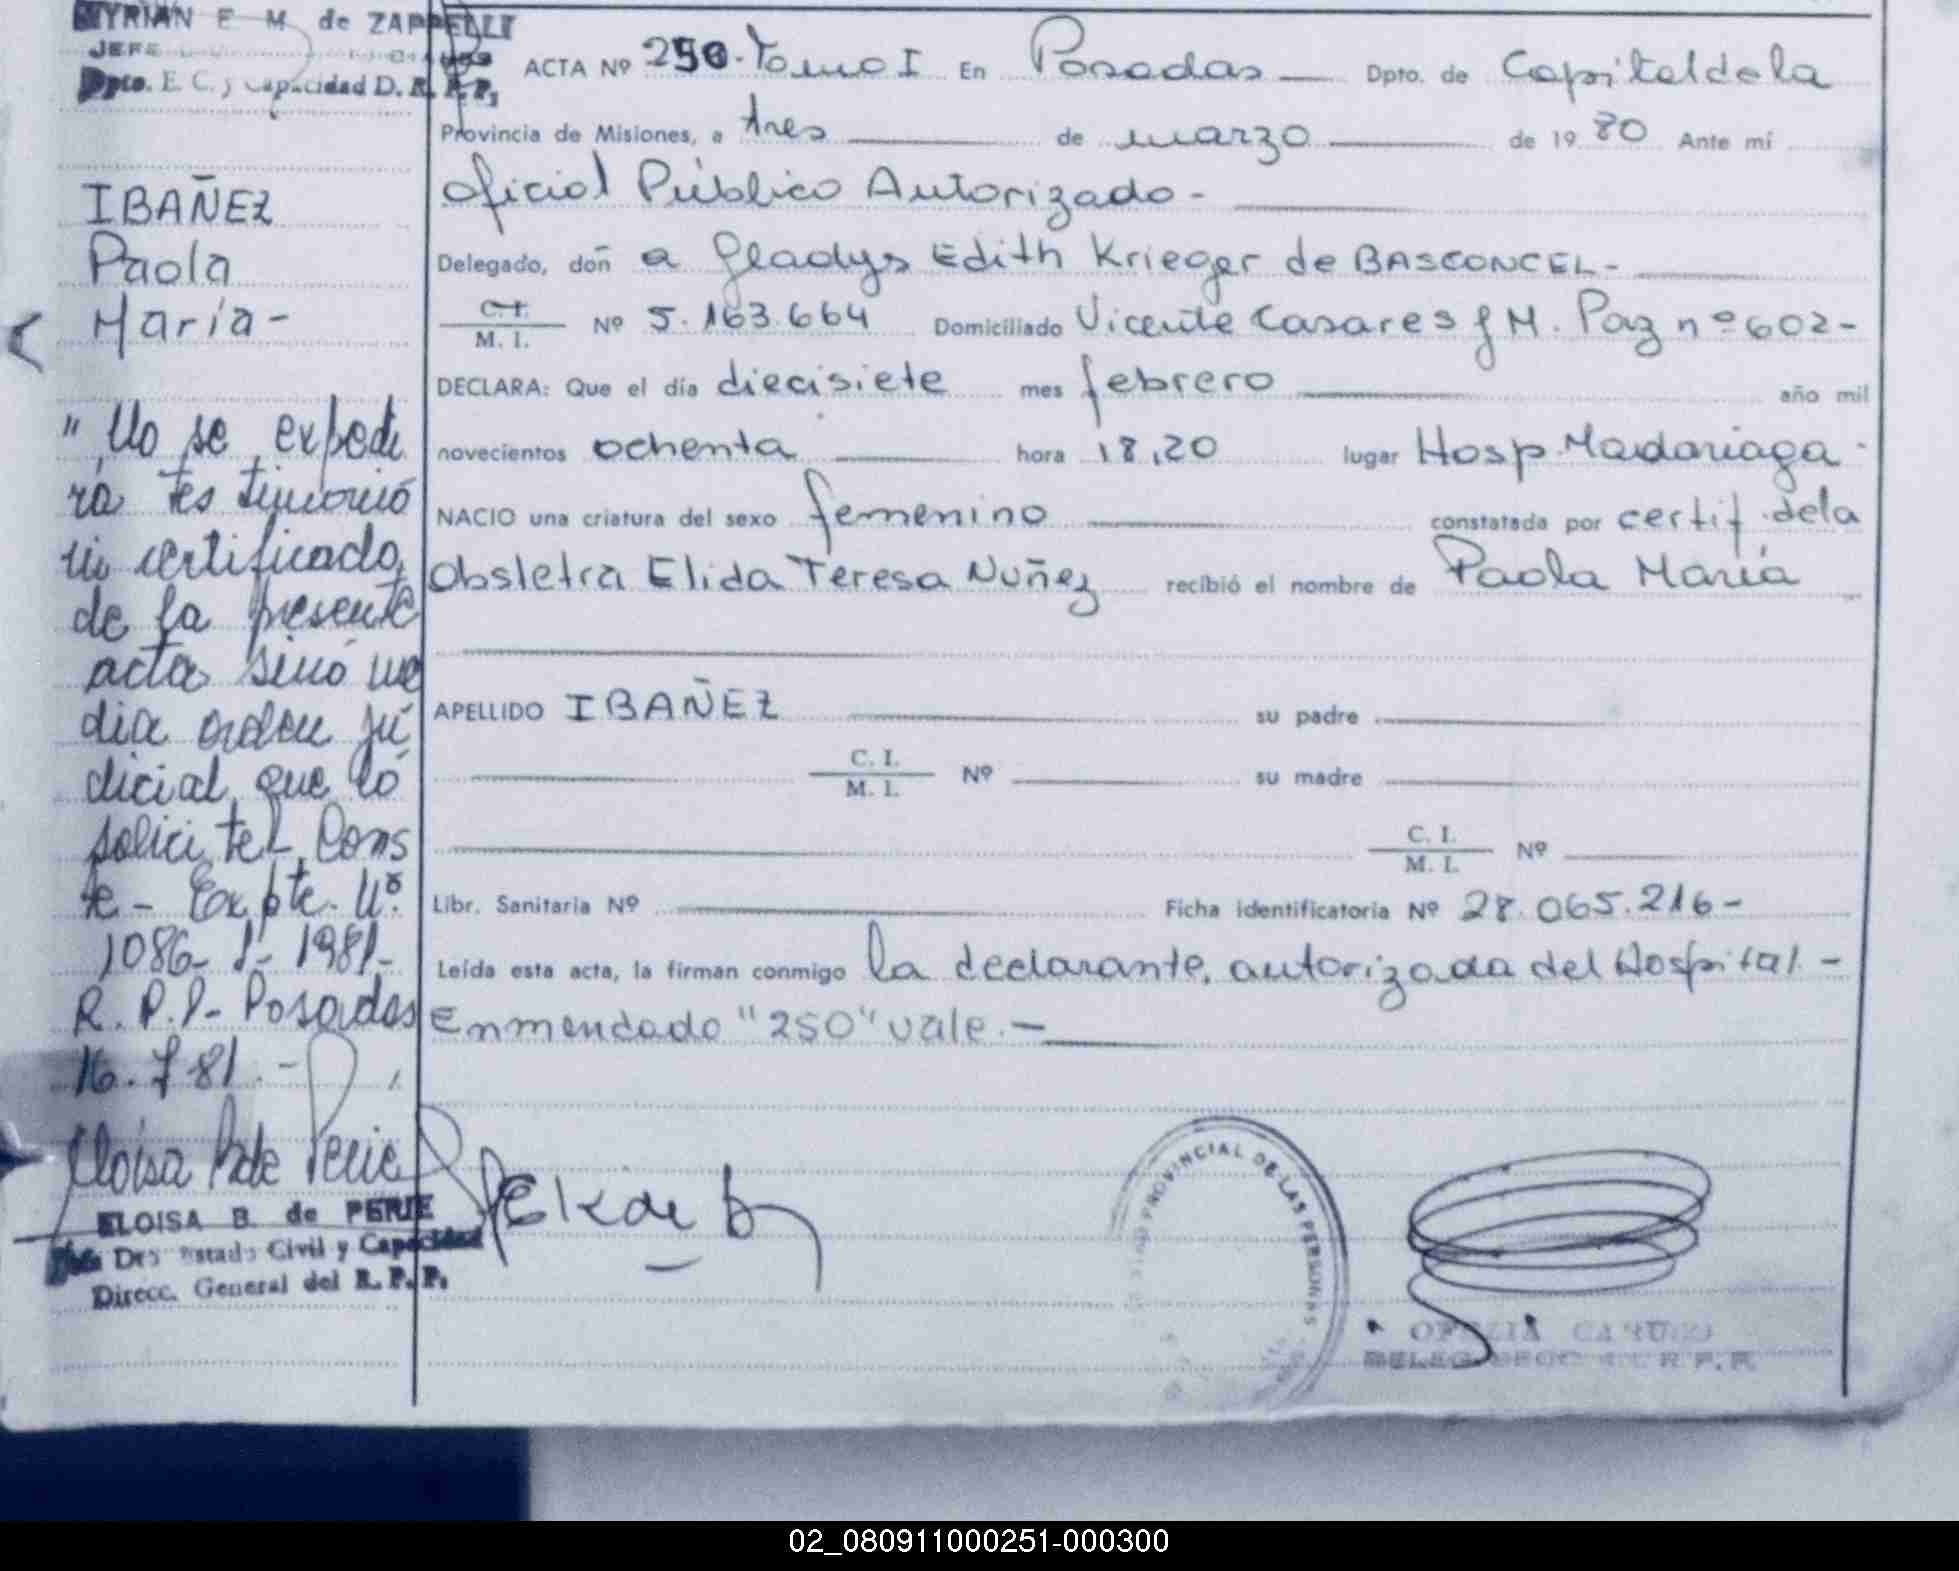 MYRIAN E. M. de ZAPPELLI
JEFE
Dpto. E. C. y Capacidad D. R. P. P.
IBAÑEZ
Paola
María-
"No se expedi
rá testimonio
ni certificado
de la presente
acta sinó me
dia orden ju
dicial que lo
solicite. Cons
te - Expte. Nº
1086- I- 1981-
R. P. P- Posadas
16. 7 81.-
Eloisa B de Perie
ELOISA B. de PERIE
Dro Estado Civil y Capacidad
Direcc. General del R. P. P.
ACTA Nº 250. Tomo I En Posadas Dpto. de Capital de la
Provincia de Misiones, a tres de marzo de 1980 Ante mí
Oficial Público Autorizado-
Delegado, doñ a Gladys Edith Krieger de BASCONCEL-
C. I.
M. I. Nº 5.163.664 Domiciliado Vicente Casares y M. Paz nº 602-
DECLARA: Que el día diecisiete mes febrero año mil
novecientos ochenta hora 18,20 lugar Hosp. Madariaga.
NACIO una criatura del sexo femenino constatada por certif. de la
Obsletra Elida Teresa Nuñez recibió el nombre de Paola María
APELLIDO IBAÑEZ su padre
C. I.
M. I. Nº su madre
C. I.
M. I. Nº
Libr. Sanitaria Nº Ficha identificatoria Nº 28.065.216-
Leída esta acta, la firman conmigo la declarante, autorizada del Hospital.-
Enmendado "250" vale.-
GEK de B
PROVINCIAL DE LAS PERSONAS
OFELIA
DELEG. R. P. P.
02_080911000251-000300